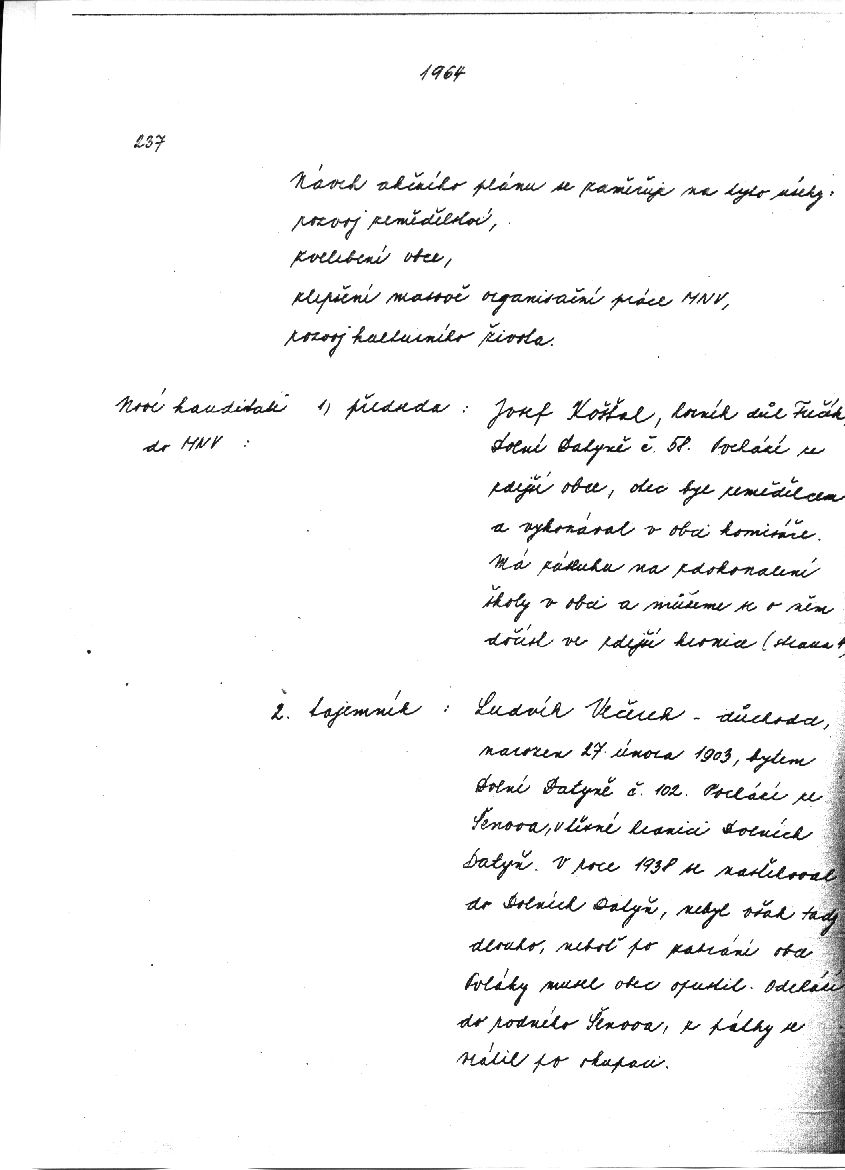 1964
237
Návrh akčního plánu se zaměřuje na tyto úseky:
rozvoj zemědělství,
zvelebení obce,
zlepšení masově organisační práce MNV,
rozvoj kulturního života.
Noví kandidáti 1, předseda : Josef Košťál, horník důl Fučík,
do MNV : Dolní Datyně č. 58. Pochází ze
zdejší obce, otec byl zemědělcem
a vykonával v obci komisaře.
Má zásluhu na zdokonalení
školy v obci a můžeme se o něm
dočíst ve zdejší kronice (strana
2. tajemník : Ludvík Večerek - důchodce,
narozen 27. února 1903, bytem
Dolní Datyně č. 102. Pochází ze
Šenova, v těsné hranici Dolních
Datyň. V roce 1938 se nastěhoval
do Dolních Datyň, nebyl však tady
dlouho, neboť po zabrání obce
Poláky musel obec opustit. Odchází
do rodného Šenova, z zpátky se
vrátil po okupaci.